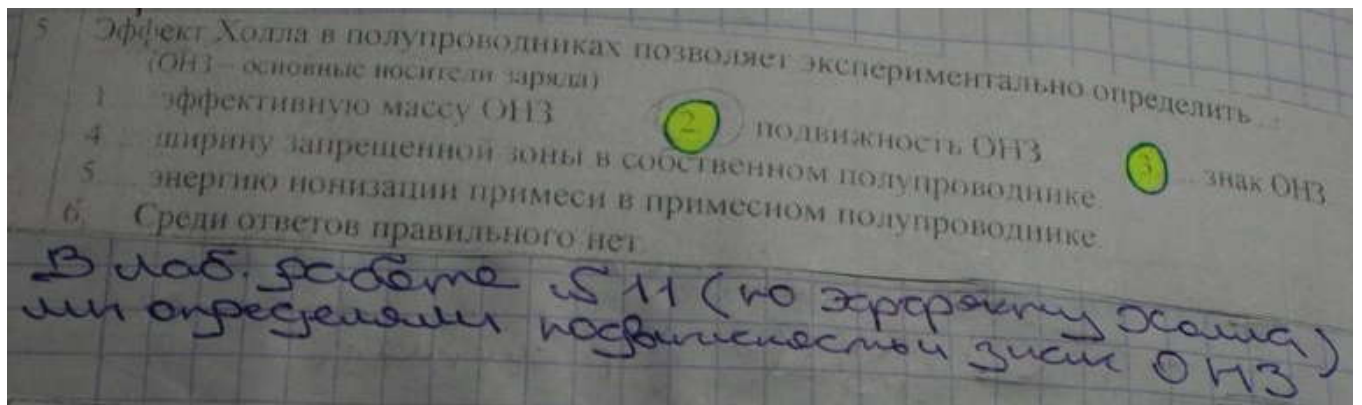 5 Эффект Холла в полупроводниках позволяет экспериментально определить...:
(ОНЗ – основные носители заряда)
1 ... эффективную массу ОНЗ 2 ... подвижность ОНЗ 3 ... знак ОНЗ
4 ... ширину запрещенной зоны в собственном полупроводнике.
5 ... энергию ионизации примеси в примесном полупроводнике.
6. Среди ответов правильного нет.
В лаб. работе №11 (по эффекту Холла)
мы определяли подвижность и знак ОНЗ